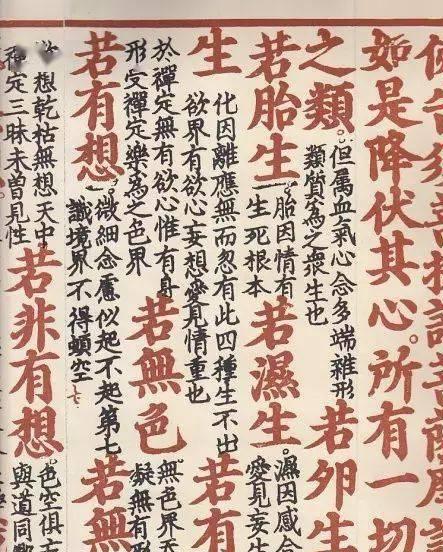 告須菩提諸菩薩摩
如是降伏其心。所有一切
之類。
但属血氣心念多端雜形
類質為之衆生也
若卵生
若胎生
胎因情有
一生死根本
若濕生。
濕因感
愛見妄生
生
化因離應無而忽有此四種生不出
欲界有欲心妄想愛見情重也
若有
於禪定無有欲心惟有身
形受禪定樂為之色界
若無色
無色界天
疑無有形
若有想
微細念應似起不起第七
識境界不得頓空
若無
想乾枯無想天中
定三昧未曾見性
若非有想。
色空俱
與道同